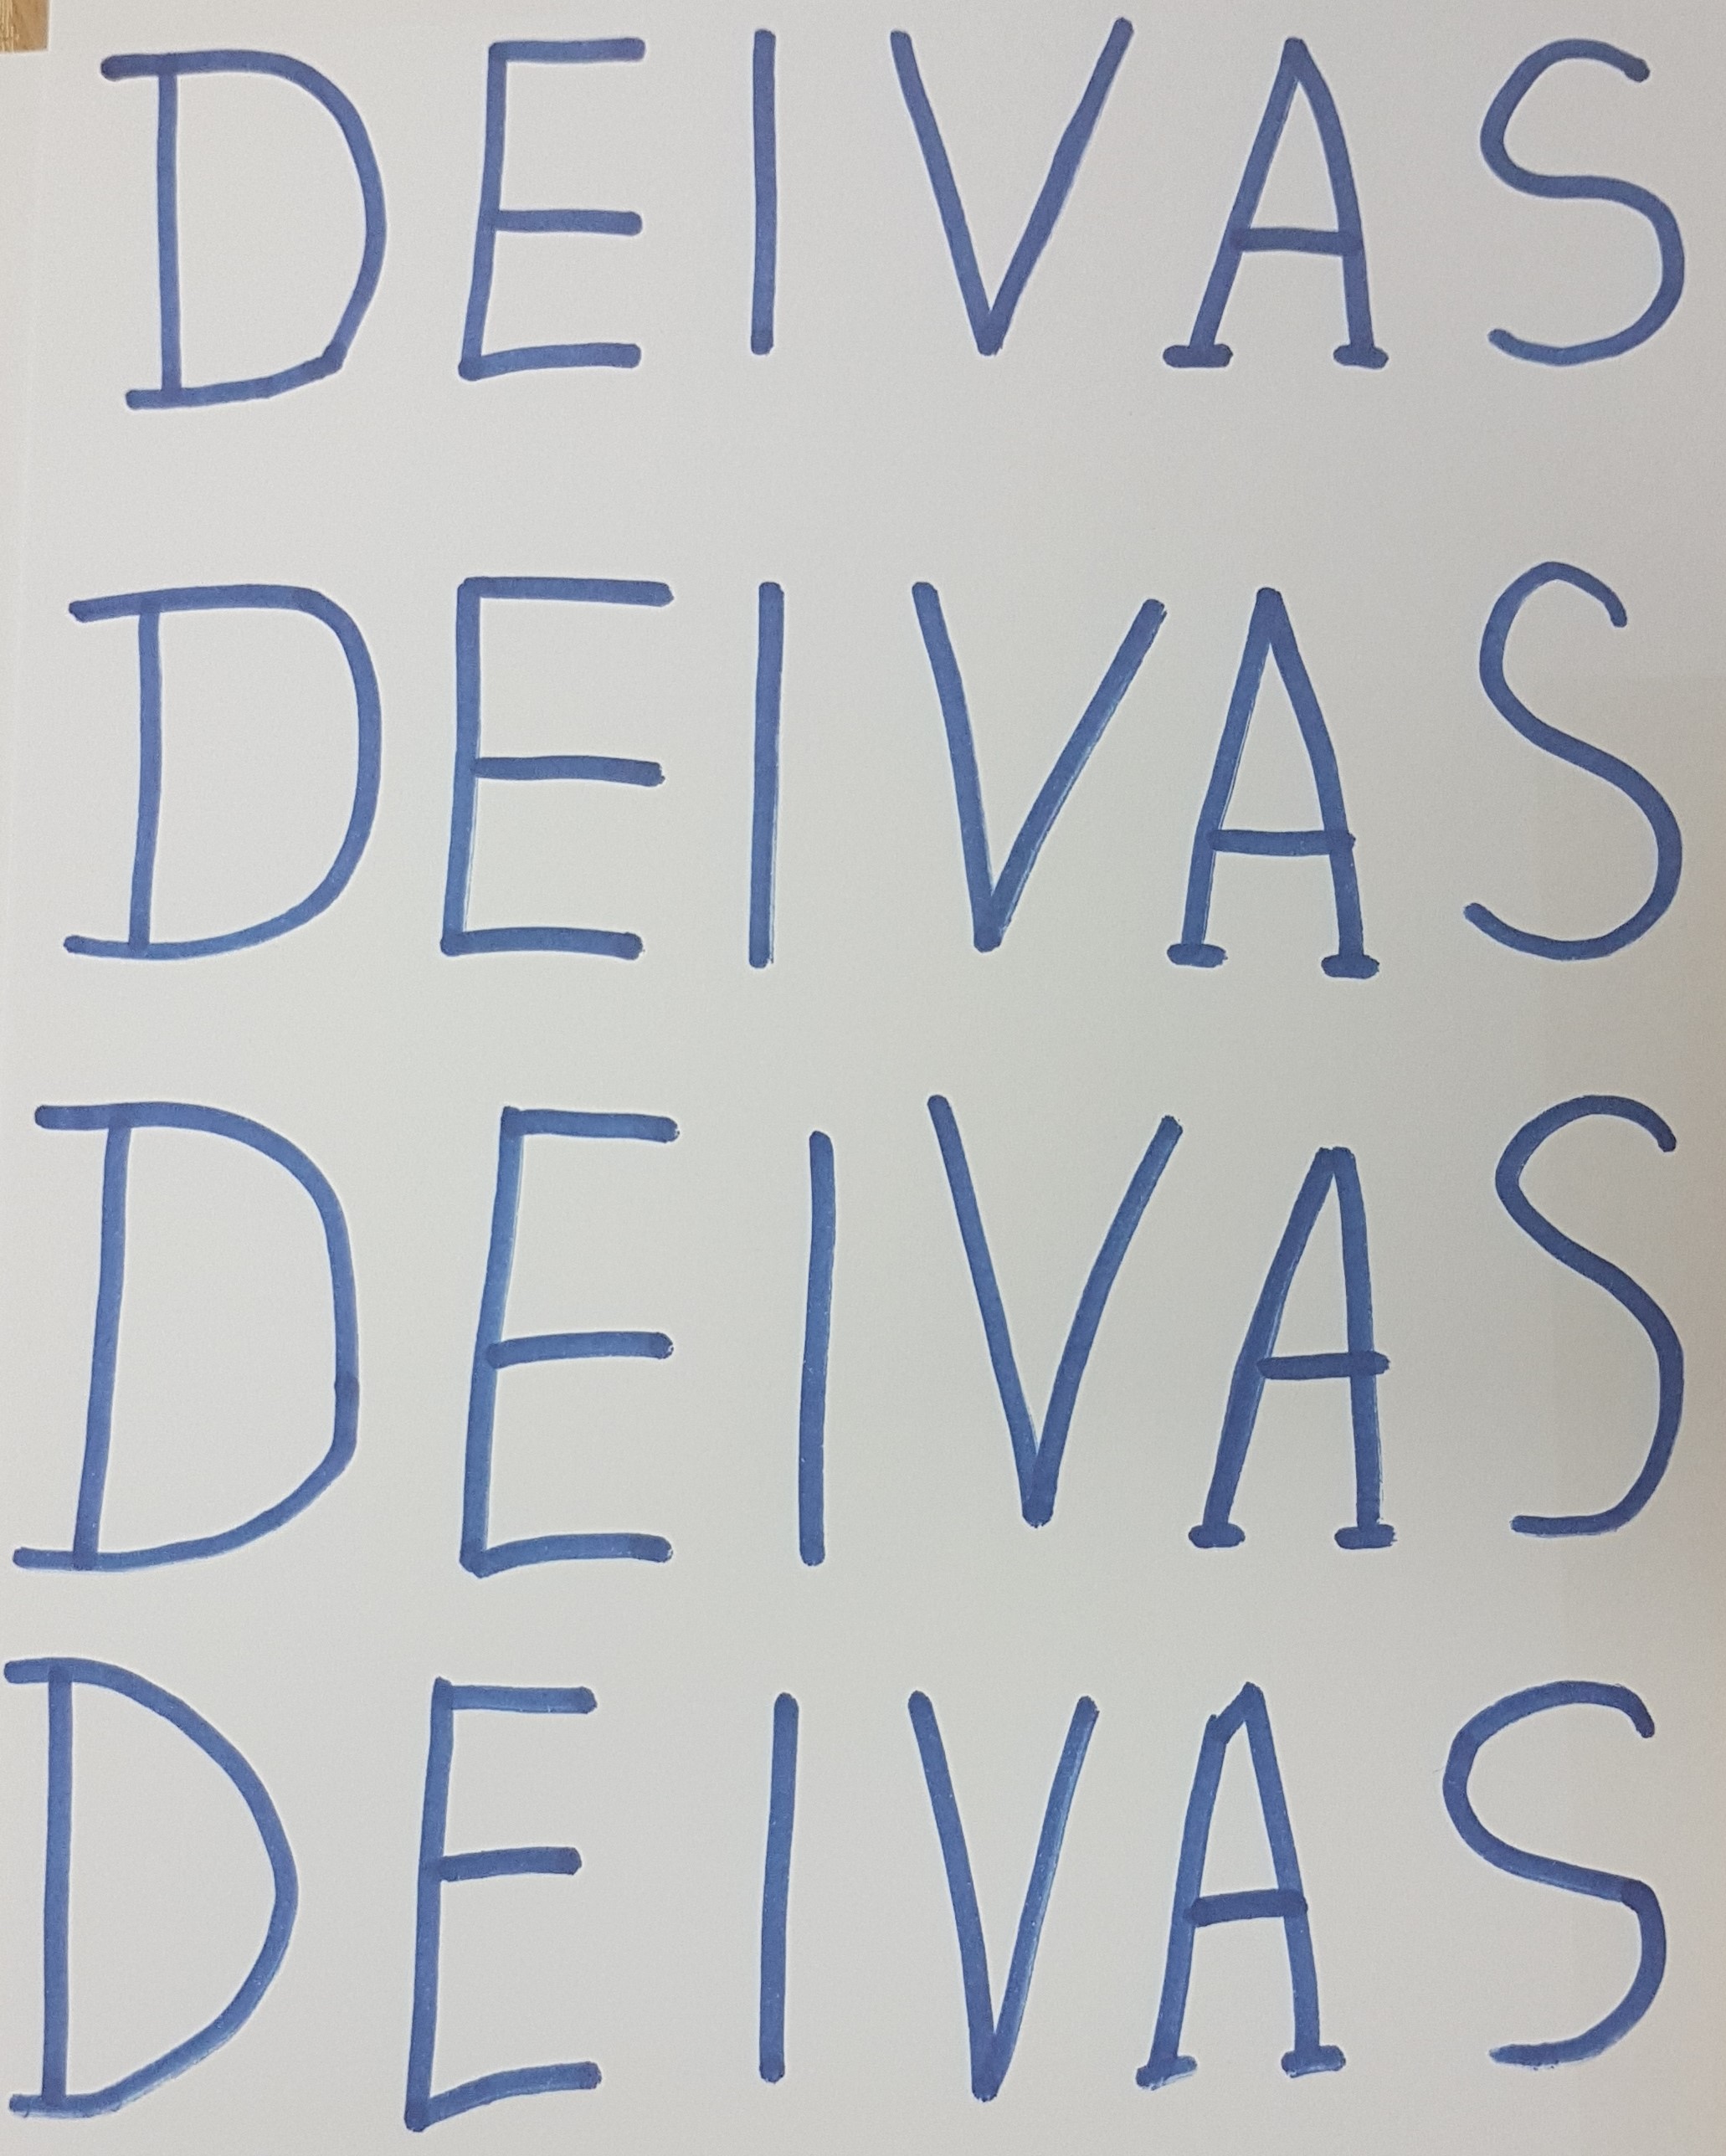 DEIVAS
DEIVAS
DEIVAS
DEIVAS